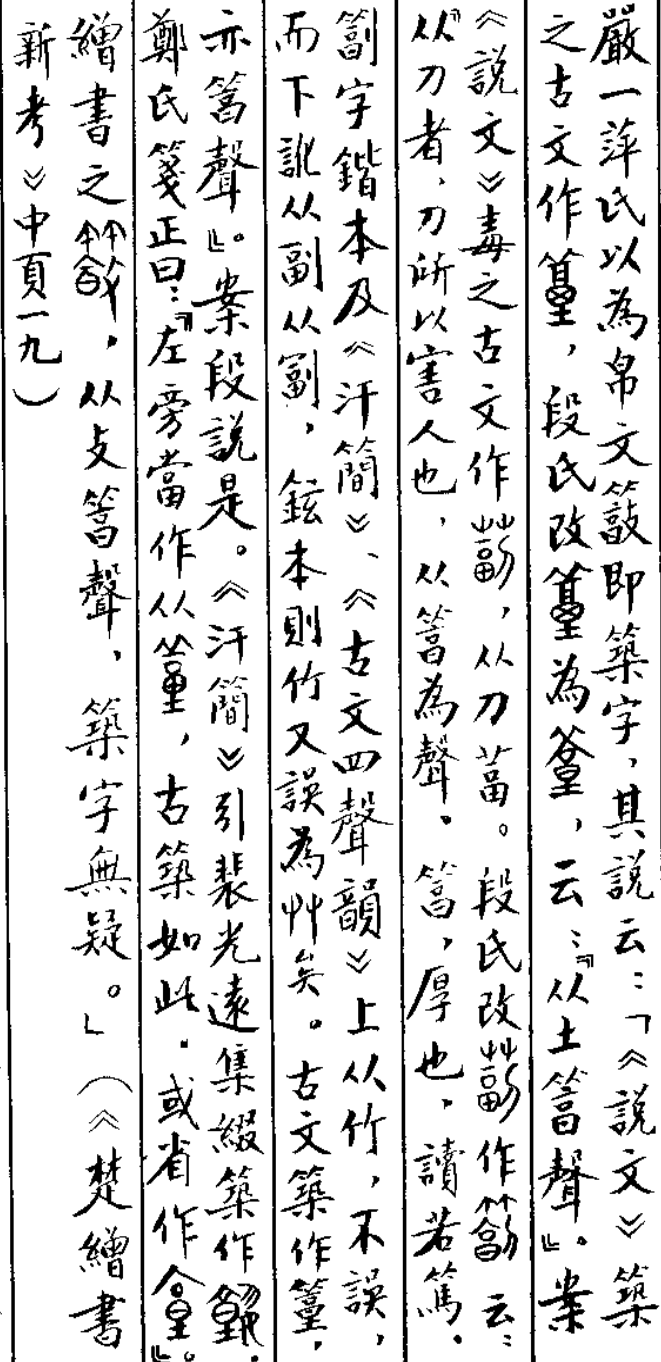 嚴一萍氏以為帛文簤即築字，其說云：「《說文》築
之古文作𥫱，段氏改𥫱為䈞，云：『从土筥聲』。案
《說文》毒之古文作𦸕，从刀葍。段氏改𦸕作𥳓云：
『从刀者，刀所以害人也，从筥為聲。筥，厚也，讀若篤。
𥳓字鍇本及《汗簡》、《古文四聲韻》上从竹，不誤，
而下訛从副从劉，鉉本則竹又誤為艸矣。古文築作𥫱，
亦筥聲』。案段說是。《汗簡》引裴光遠集綴築作
鄭氏箋正曰：『左旁當作从𥫱，古築如此。或省作』。
繒書之，从攴筥聲，築字無疑。」（《楚繒書
新考》中頁一九）